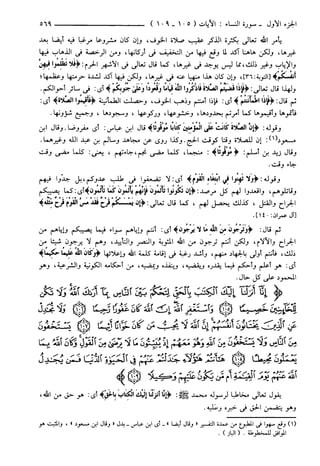 الجزء الأول - سورة النساء: الآيات (١٠٥ - ١٠٩) ٥٦٩
يأمر الله تعالى بكثرة الذكر عقيب صلاة الخوف، وإن كان مشروعا مرغبا فيه أيضا بعد
غيرها، ولكن هاهنا آكد لما وقع فيها من التخفيف في أركانها، ومن الرخصة في الذهاب فيها
والإياب وغير ذلك، مما ليس يوجد في غيرها، كما قال تعالى في الأشهر الحرم: ﴿فَلَا تَظْلِمُوا فِيهِنَّ
أَنفُسَكُمْ﴾ [التوبة: ٣٦]، وإن كان هذا منهيا عنه في غيرها، ولكن فيها آكد لشدة حرمتها وعظمها؛
ولهذا قال تعالى: ﴿فَإِذَا قَضَيْتُمُ الصَّلَاةَ فَاذْكُرُوا اللَّهَ قِيَامًا وَقُعُودًا وَعَلَىٰ جُنُوبِكُمْ﴾ أي: في سائر أحوالكم.
ثم قال: ﴿فَإِذَا اطْمَأْنَنتُمْ﴾ أي: فإذا أمنتم وذهب الخوف، وحصلت الطمأنينة ﴿فَأَقِيمُوا الصَّلَاةَ﴾ أي:
فأتموها وأقيموها كما أمرتم بحدودها، وخشوعها، وركوعها، وسجودها، وجميع شئونها.
وقوله: ﴿إِنَّ الصَّلَاةَ كَانَتْ عَلَى الْمُؤْمِنِينَ كِتَابًا مَّوْقُوتًا﴾ قال ابن عباس: أي مفروضا. وقال ابن
مسعود(١): إن للصلاة وقتا كوقت الحج. وكذا روي عن مجاهد وسالم بن عبد الله وغيرهما.
وقال زيد بن أسلم: ﴿مَّوْقُوتًا﴾: منجما، كلما مضى نجم، جاءتهم، يعني: كلما مضى وقت
جاء وقت.
وقوله: ﴿وَلَا تَهِنُوا فِي ابْتِغَاءِ الْقَوْمِ﴾ أي: لا تضعفوا في طلب عدوكم، بل جدّوا فيهم
وقاتلوهم، واقعدوا لهم كل مرصد: ﴿إِن تَكُونُوا تَأْلَمُونَ فَإِنَّهُمْ يَأْلَمُونَ كَمَا تَأْلَمُونَ﴾ أي: كما يصيبكم
الجراح والقتل، كذلك يحصل لهم، كما قال تعالى: ﴿إِن يَمْسَسْكُمْ قَرْحٌ فَقَدْ مَسَّ الْقَوْمَ قَرْحٌ مِّثْلُهُ﴾
[آل عمران: ١٤٠].
ثم قال: ﴿وَتَرْجُونَ مِنَ اللَّهِ مَا لَا يَرْجُونَ﴾ أي: أنتم وإياهم سواء فيما يصيبكم وإياهم من
الجراح والآلام، ولكن أنتم ترجون من الله المثوبة والنصر والتأييد، وهم لا يرجون شيئا من
ذلك، فأنتم أولى بالجهاد منهم، وأشد رغبة في إقامة كلمة الله وإعلائها ﴿وَكَانَ اللَّهُ عَلِيمًا حَكِيمًا﴾
أي: هو أعلم وأحكم فيما يقدره ويقضيه، وينفذه ويمضيه، من أحكامه الكونية والشرعية، وهو
المحمود على كل حال.
﴿إِنَّا أَنزَلْنَا إِلَيْكَ الْكِتَابَ بِالْحَقِّ لِتَحْكُمَ بَيْنَ النَّاسِ بِمَا أَرَاكَ اللَّهُ وَلَا تَكُن
لِّلْخَائِنِينَ خَصِيمًا ۝ وَاسْتَغْفِرِ اللَّهَ إِنَّ اللَّهَ كَانَ غَفُورًا رَّحِيمًا ۝ وَلَا تُجَادِلْ
عَنِ الَّذِينَ يَخْتَانُونَ أَنفُسَهُمْ إِنَّ اللَّهَ لَا يُحِبُّ مَن كَانَ خَوَّانًا أَثِيمًا ۝ يَسْتَخْفُونَ
مِنَ النَّاسِ وَلَا يَسْتَخْفُونَ مِنَ اللَّهِ وَهُوَ مَعَهُمْ إِذْ يُبَيِّتُونَ مَا لَا يَرْضَىٰ مِنَ الْقَوْلِ وَكَانَ اللَّهُ بِمَا
يَعْمَلُونَ مُحِيطًا ۝ هَا أَنتُمْ هَٰؤُلَاءِ جَادَلْتُمْ عَنْهُمْ فِي الْحَيَاةِ الدُّنْيَا فَمَن يُجَادِلُ
اللَّهَ عَنْهُمْ يَوْمَ الْقِيَامَةِ أَم مَّن يَكُونُ عَلَيْهِمْ وَكِيلًا ۝﴾
يقول تعالى مخاطبا لرسوله محمد ﷺ: ﴿إِنَّا أَنزَلْنَا إِلَيْكَ الْكِتَابَ بِالْحَقِّ﴾ أي: هو حق من الله،
وهو يتضمن الحق في خبره وطلبه.
(١) وقع سهوا في المطبوع من عمدة التفسير «وقال أيضا» - أي ابن عباس - بدل «وقال ابن مسعود»، والمثبت هو
الموافق للمخطوطة. (الباز).